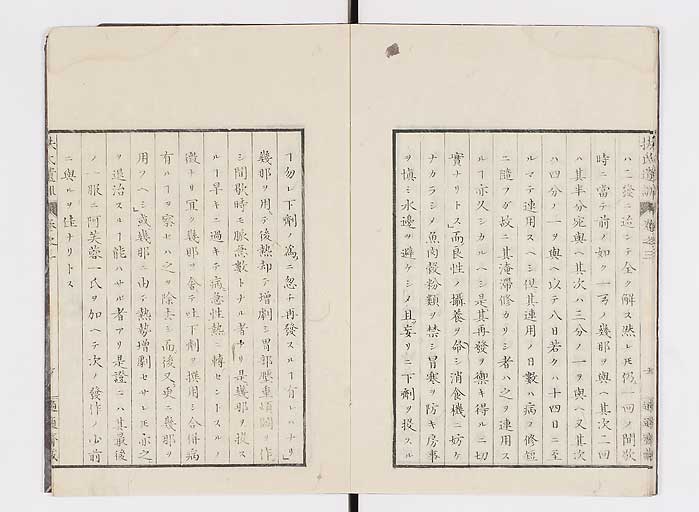 ハ二發ニ造シテ全ク解ス然レ𪜈仍一回ノ間歇
時ニ當テ前ノ如ク一ヲノ幾那ヲ與ヘ其次二回
ハ其半分宛與ヘ其次ハ三分ノ一ヲ與ヘ又其次
ハ四分ノ一ヲ與ヘ以テ八日若クハ十四日ニ至
ルマテ連用スヘシ但其連用ノ日數ハ病ノ修短
ニ隨フガ故ニ其淹滯修カリシ者ハ之ヲ連用ス
ルヿ亦久シカルヘシ是其再發ヲ禦キ得ルニ切
實ナリトス而良性ノ攝養ヲ命シ消食機ニ妨ケ
ナカラシメ魚肉穀粉類ヲ禁シ冒寒ヲ防キ房事
ヲ愼ミ水邊ヲ避ケシメ且妄リニ下劑ヲ投スル
ヿ勿レ下劑ノ爲ニ忽チ再發スルヿ有レハナリ
幾那ヲ用テ後熱却テ増劇シ胃部壓重煩悶ヲ作
シ間歇時モ脈急數トナル者ナリ是幾那ヲ投ス
ルヿ早キニ過キテ病急性熱ニ轉セントスルノ
徴ナリ宜ク幾那ヲ舍テ吐下劑ヲ撰用シ合併病
有ルヿヲ察セハ之ヲ除去シ而後又更ニ幾那ヲ
用フヘシ或幾那ニ由テ熱勢増劇セサレ𪜈亦之
ヲ退治スルヿ能ハサル者アリ是證ニハ其最後
ノ一服ニ阿芙蓉一氏ヲ加ヘテ次ノ發作ノ少前
ニ與ルヲ佳ナリトス